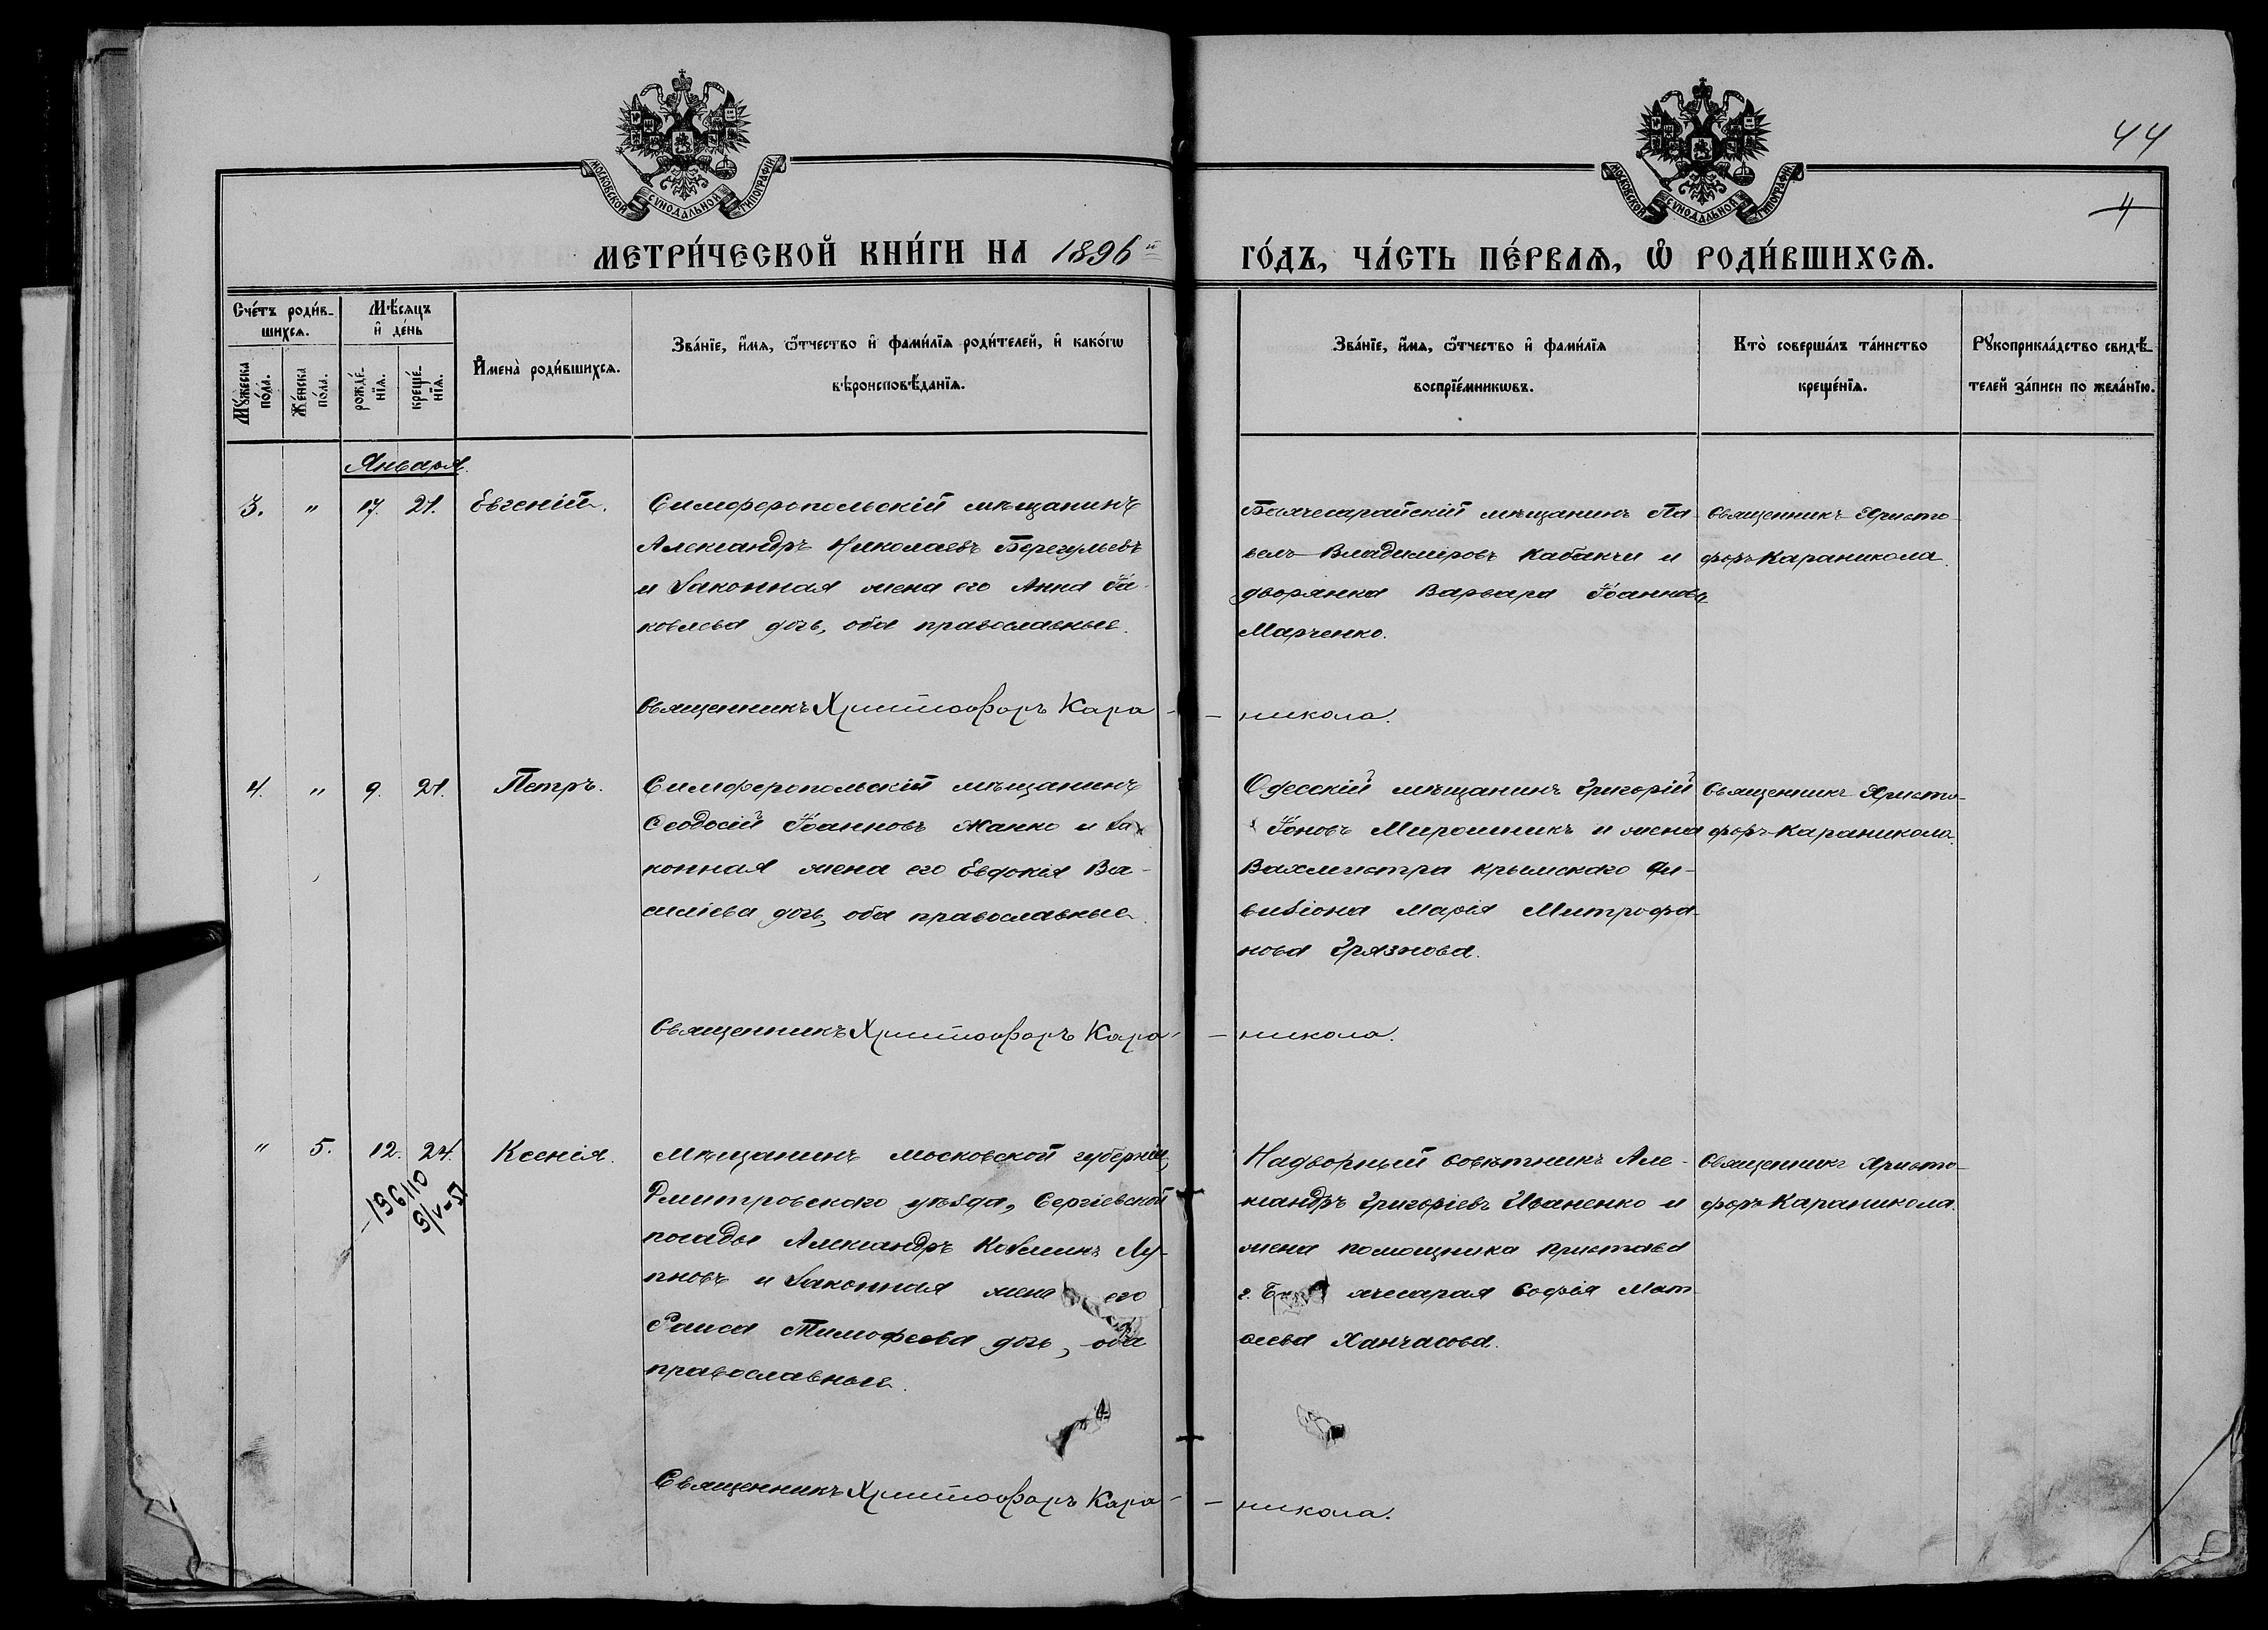 МОСКОВСКОЙ СУНОДАЛЬНОЙ ТИПОГРАФІИ
МОСКОВСКОЙ СУНОДАЛЬНОЙ ТИПОГРАФІИ
44
4
МЕТРИ́ЧЕСКОЙ КНИ́ГИ НА 1896й
ГО́ДЪ, ЧА́СТЬ ПЕ́РВАѦ, Ѡ҆ РОДИ́ВШИХСѦ.
Сче́тъ роди́в-
шихсѧ.
Мꙋ́жеска по́ла.
Же́нска по́ла.
Мѣ́сѧцъ
и҆ де́нь
рожде́-
нїѧ.
креще́-
нїѧ.
И҆мена̀ роди́вшихсѧ.
Зва́нїе, и҆́мѧ, ѻ҆́тчество и҆ фами́лїѧ роди́телей, и҆ како́гѡ
вѣроисповѣ́данїѧ.
Зва́нїе, и҆́мѧ, ѻ҆́тчество и҆ фами́лїѧ
воспрїе́мникѡвъ.
Кто̀ соверша́лъ та́инство
креще́нїѧ.
Рꙋкоприкла́дство свидѣ́-
телей за́писи по жела́нїю.
Января.
3. " 17. 21. Евгеній.
Симферопольскій мѣщанинъ
Александръ Николаевъ Берегульевъ
и законная жена его Анна Іа-
ковлева дочь, оба православные.
Бахчесарайскій мѣщанинъ Па-
велъ Владиміровъ Кабакчи и
дворянка Варвара Іоаннова
Марченко.
Священникъ Христо-
форъ Караникола.
Священникъ Христофоръ Кара-
-никола.
4. " 9. 21. Петръ.
Симферопольскій мѣщанинъ
Ѳеодосій Іоанновъ Жанко и за-
конная жена его Евдокія Ва-
силіева дочь, оба православные.
Одесскій мѣщанинъ Григорій
Іоновъ Мирошникъ и жена
Вахмистра Крымскаго Ди-
визіона Марія Митрофа-
нова Грязнова.
Священникъ Христо-
форъ Караникола.
Священникъ Христофоръ Кара-
-никола.
" 5. 12. 24. Ксенія.
-196110
5/V-51
Мѣщанинъ Московской губерніи,
Дмитровскаго уѣзда, Сергіевской
посады Александръ Козминъ Лу-
пновъ и законная жена его
Раиса Тимофеева дочь, оба
православные.
Надворный совѣтникъ Але-
ксандръ Григоріевъ Иваненко и
жена помощника пристава
г. Бахчесарая Софія Мат-
веева Ханчасова.
Священникъ Христо-
форъ Караникола.
Священникъ Христофоръ Кара-
-никола.